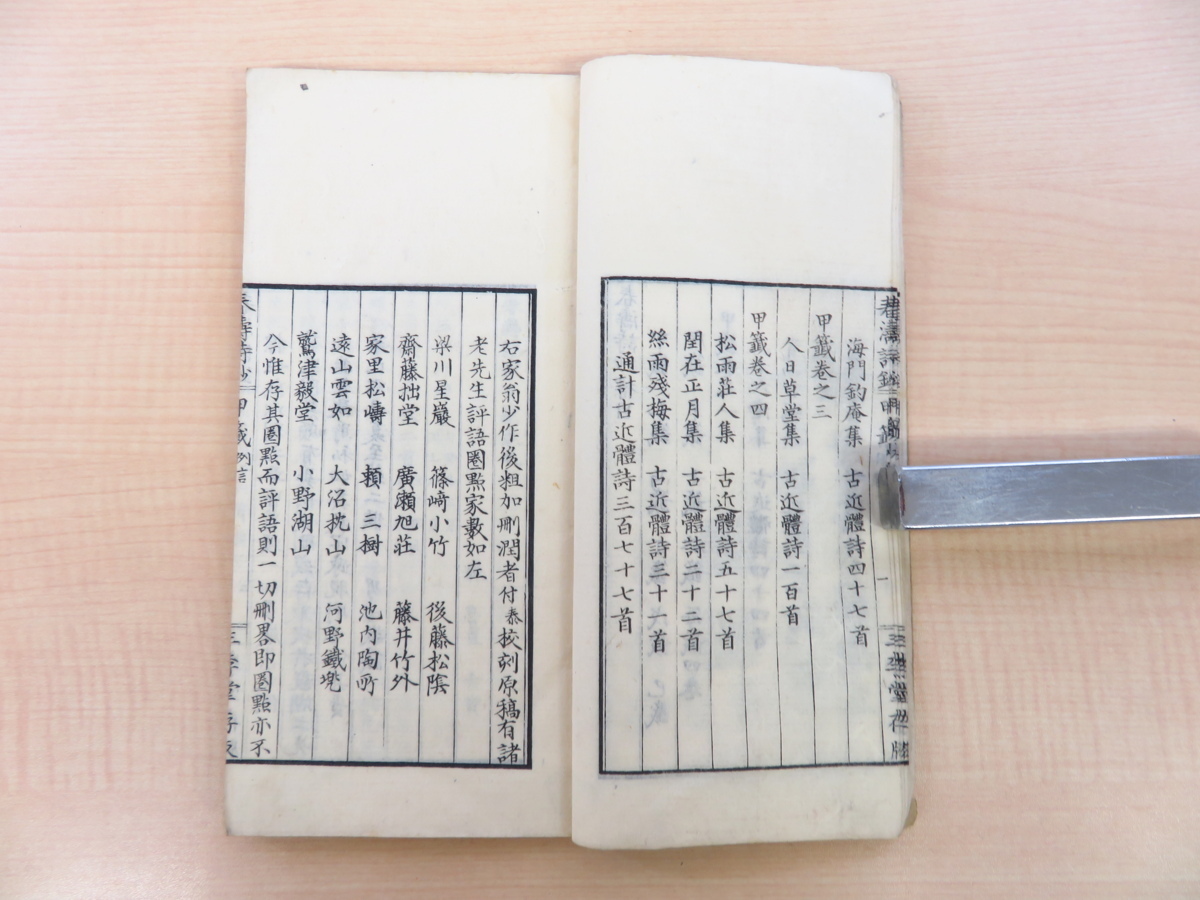 海門釣庵集 古近體詩四十七首
甲籤卷之三
人日草堂集 古近體詩一百首
甲籤卷之四
松雨莊人集 古近體詩五十七首
閏在正月集 古近體詩二十二首
絲雨殘梅集 古近體詩三十一首
通計古近體詩三百七十七首
右家翁少作後粗加刪潤者付泰挍刻原稿有諸
老先生評語圈點家數如左
梁川星巖 篠﨑小竹 後藤松陰
齋藤拙堂 廣瀨旭莊 藤井竹外
家里松嶹 賴三樹 池内陶所
遠山雲如 大沼枕山 河野鐵兜
鷲津毅堂 小野湖山
今惟存其圈點而評語則一切刪畧即圈點亦不